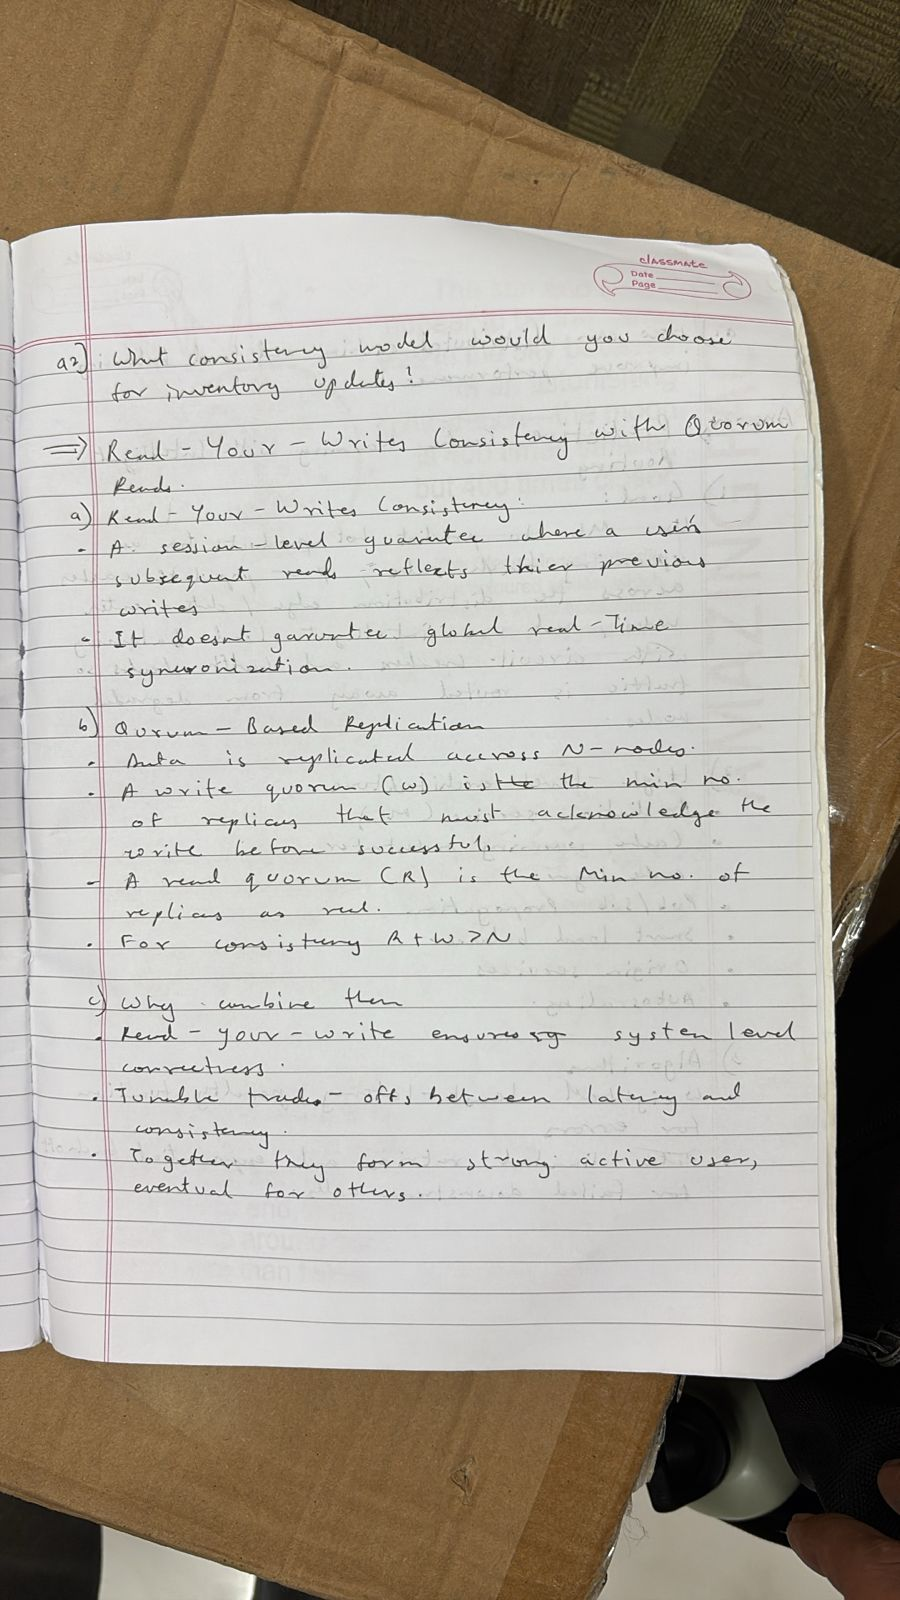 classmate
Date
Page
Q2) What consistency model would you choose
for inventory updates?
⇒ Read - Your - Writes Consistency with Quorum
Reads.
a) Read - Your - Writes Consistency:
· A session - level guarantee where a user's
subsequent reads reflects thier previous
writes
· It doesnt garuntee global real - Time
syncronization.
b) Qurum - Based Replication
· Data is replicated accross N - nodes.
· A write quorum (W) is the min no.
of replicas that must acknowledge the
write before successful,
- A read quorum (R) is the Min no. of
replicas as red.
· For consisteny R + W > N
c) Why combine them
· Read - your - write ensures system level
correctness.
· Tunable trade - offs between lateny and
consisteny.
· Together they form strong active user,
eventual for others.